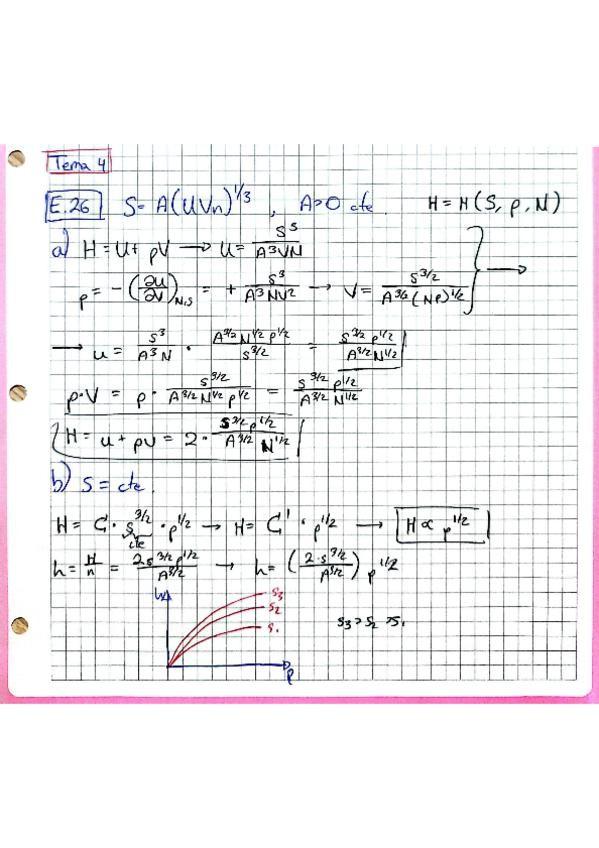 Tema 4
E.26 S = A(UVn)^1/3 , A>0 cte. H = H(S, p, N)
a) H = U + pV → U = S^3/A^3VN
p = -(∂U/∂V)_N,S = + S^3/A^3NV^2 → V = S^3/2/A^3/2(Np)^1/2 →
→ u = S^3/A^3N · A^3/2N^1/2p^1/2/S^3/2 = S^3/2p^1/2/A^3/2N^1/2
p·V = p · S^3/2/A^3/2N^1/2p^1/2 = S^3/2p^1/2/A^3/2N^1/2
H = u + pv = 2 · S^3/2p^1/2/A^3/2N^1/2
b) S = cte.
H = C · S^3/2 · p^1/2 → H = C' · p^1/2 → H ∝ p^1/2
cte
h = H/n = 2s^3/2p^1/2/A^3/2 → h = (2·s^3/2/A^3/2) p^1/2
h
s3
s2
s1
s3 > s2 > s1
p